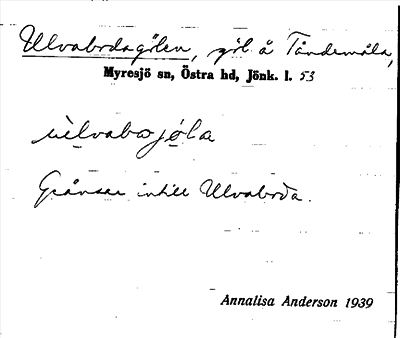 Ulvabrdagölen, göl å Tåndemåla,
Myresjö sn, Östra hd, Jönk. l. 53
Gränsar intill Ulvabrda.
Annalisa Anderson 1939